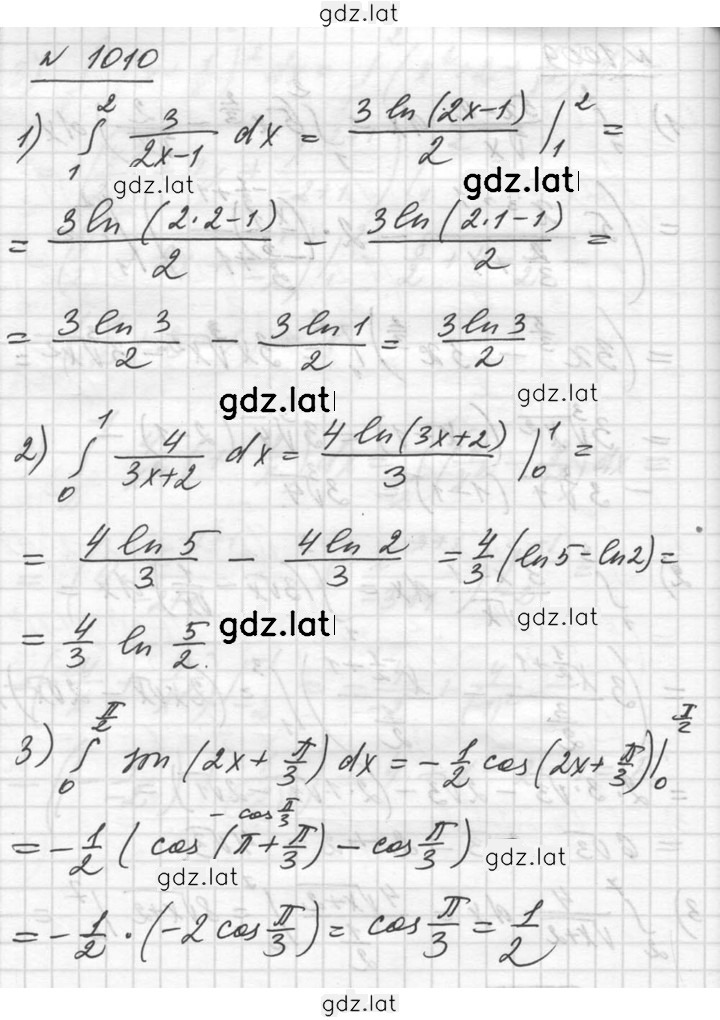 gdz.lat
№ 1010
1) ∫₁² 3/(2x-1) dx = (3 ln (2x-1))/2 |₁² =
gdz.lat gdz.lat
= (3 ln (2·2-1))/2 - (3 ln (2·1-1))/2 =
= (3 ln 3)/2 - (3 ln 1)/2 = (3 ln 3)/2
gdz.lat gdz.lat
2) ∫₀¹ 4/(3x+2) dx = (4 ln (3x+2))/3 |₀¹ =
= (4 ln 5)/3 - (4 ln 2)/3 = 4/3 (ln 5 - ln 2) =
= 4/3 ln 5/2. gdz.lat gdz.lat
3) ∫₀^(π/2) sin (2x + π/3) dx = -1/2 cos (2x + π/3) |₀^(π/2)
- cos π/3
= -1/2 ( cos (π + π/3) - cos π/3 ) gdz.lat
gdz.lat
= -1/2 · (-2 cos π/3) = cos π/3 = 1/2
gdz.lat